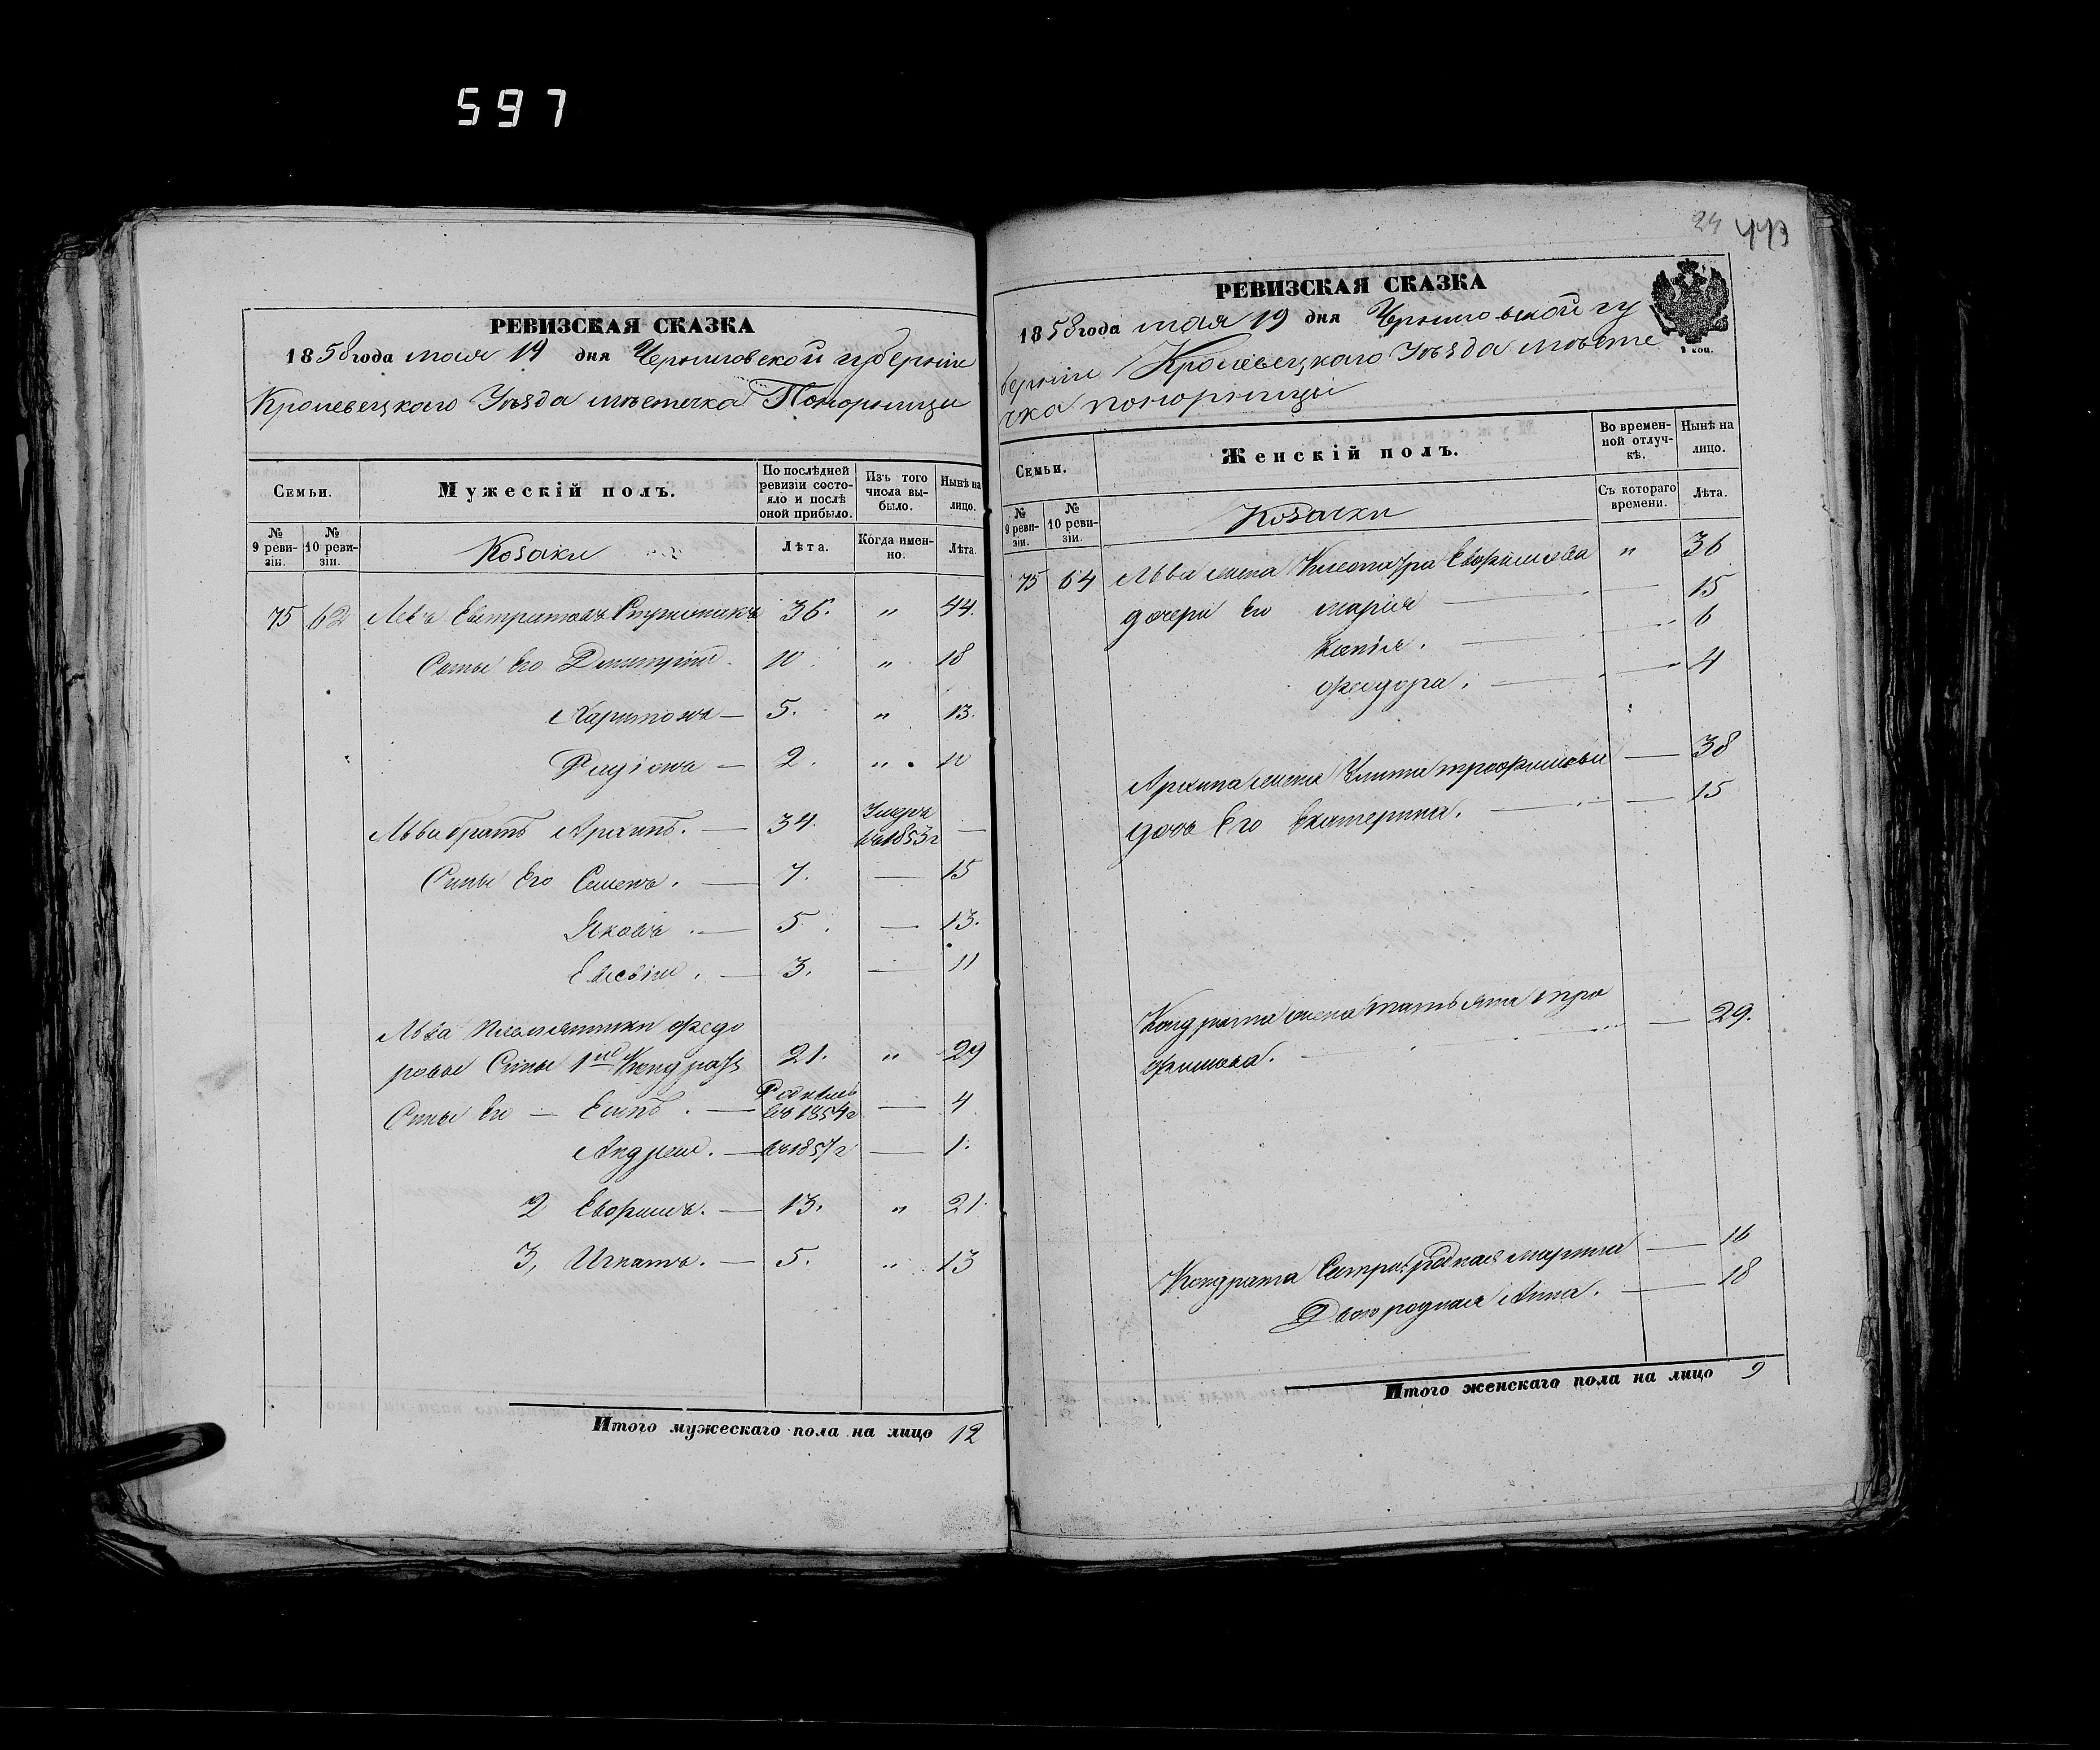 597
РЕВИЗСКАЯ СКАЗКА
1858 года мая 19 дня Черниговской губернiи
Кролевецкаго Уѣзда мѣстечка Понорницы
Семьи.
Мужескiй полъ.
По послѣдней ревизiи состояло и послѣ оной прибыло.
Изъ того числа выбыло.
Нынѣ на лицо.
№ 9 ревизiи.
№ 10 ревизiи.
Козаки
Лѣта.
Когда именно.
Лѣта.
75 62 Левъ Евстратовъ 36. " 44.
Сыны Его Дмитрiй. 10. " 18
Харитонъ — 5. " 13.
Родiонъ — 2. " 10
Льва братъ Архипъ. — 34. Умеръ въ 1853 г —
Сыны Его Семенъ. — 7. — 15
Яковъ. — 5. — 13.
Евсѣiй. — 3. — 11
Льва Племянники Федо
ровы Сыны 1й Кондратъ 21. " 29
Сыны Его — — Родился въ 1854 г — 4
Андрей. — въ 1857 г — 1.
2 Евфимъ. — 13. " 21.
3, Игнатъ. — 5. " 13
Итого мужескаго пола на лицо 12
24 443
РЕВИЗСКАЯ СКАЗКА
1858 года мая 19 дня Черниговской гу
бернiи Кролевецкаго Уѣзда мѣсте
чка Понорницы
коп.
Семьи.
Женскiй полъ.
Во временной отлучкѣ.
Нынѣ на лицо.
№ 9 ревизiи.
№ 10 ревизiи.
Козачки
Съ котораго времени.
Лѣта.
75 64 Льва жена Евфимова " 36
дочери Его Марiя — 15
Ксенiя. — 6
Феодора. — 4
Архипа жена Трофимова — 38
дочь Его Екатерина. — 15
Кондрата жена Татьяна Тро
фимова. — 29.
Кондрата Сестра родная Марина — 16
Двоюродная Анна. — 18
Итого женскаго пола на лицо 9